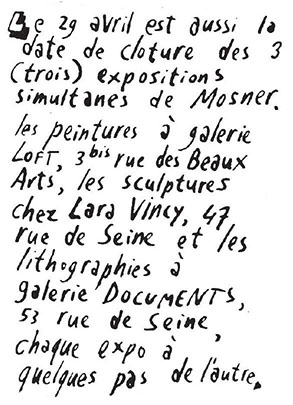 Le 29 avril est aussi la
date de cloture des 3
(trois) expositions
simultanés de Mosner.
les peintures à galerie
LOFT, 3bis rue des Beaux
Arts, les sculptures
chez Lara Vincy, 47
rue de Seine et les
lithographies à
galerie DOCUMENTS,
53 rue de Seine,
chaque expo à
quelques pas de l'autre.